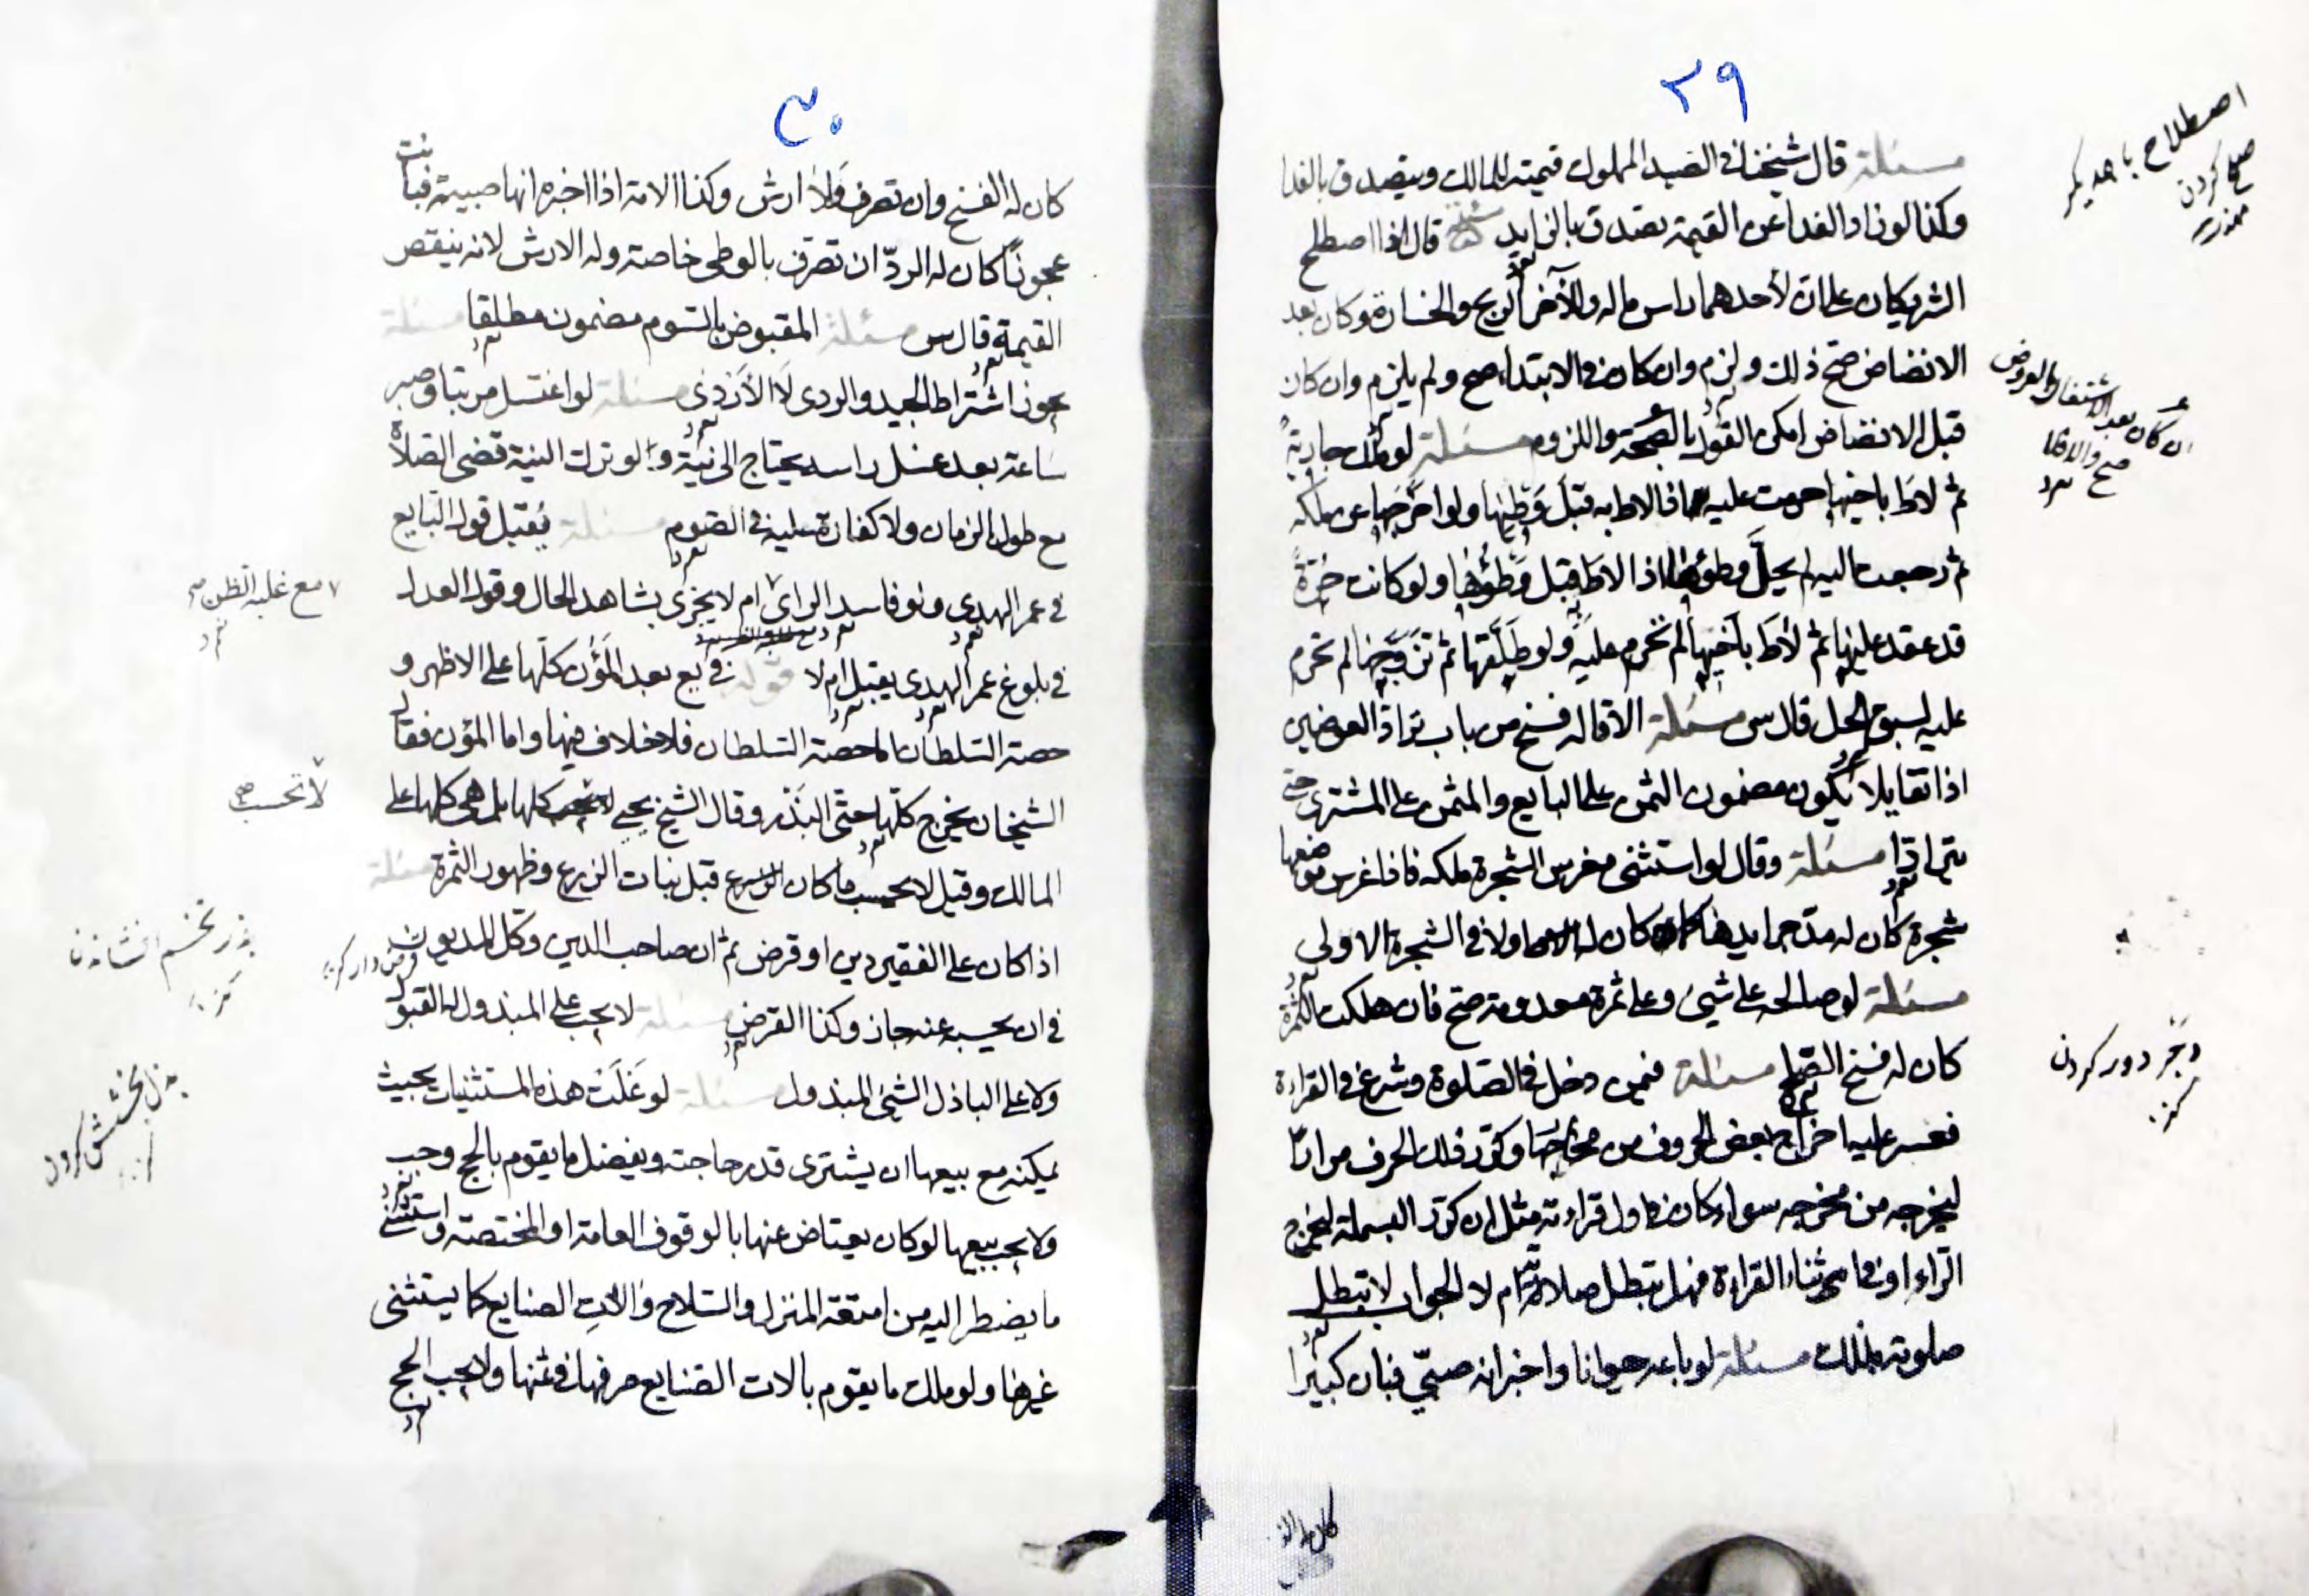 ٢٩
مسئلة قال شيخنا في الصيد المملوك قيمته للمالك ويتصدق بالفدا
وكذا لو زاد الفدا عن القيمة يصدق بالزايد مسئلة قال اذا اصطلح
الشريكان على ان لأحدهما راس ماله وللآخر الربح والخسارة وكان بعد
الانضاض صح ذلك ولزم وان كان في الابتداء صح ولم يلزم وان كان
قبل الانضاض امكن القول بالصحة واللزوم مسئلة لو ملك جارية
ثم لاط باخيها حرمت عليه اذا لاط به قبل وطئها ولو اخرجها عن ملكه
ثم رجعت اليه لم يحل وطؤها اذا لاط قبل وطؤها ولو كانت حرة
قد عقد عليها ثم لاط باخيها لم تحرم عليه ولو طلقها ثم تزوجها لم تحرم
عليه لسبق الحل قال س مسئلة الاقالة فسخ من باب تراد العوضين
اذا تقايلا يكون مضمون الثمن على البايع والمثمن على المشتري حتى
يترادا مسئلة وقال لو استثنى مغرس الشجرة ملكه فاذا غرس موضعها
شجرة كان له مد جرايدها كان له اولا في الشجرة الاولى
مسئلة لو صالحه على شيئ وعلى ثمرة معدومة صح فان هلكت الثمرة
كان له فسخ الصلح مسئلة فيمن دخل في الصلوة وشرع في القراءة
فعسر عليه اخراج بعض الحروف من مخارجها وكرر ذلك الحرف مرارا
ليخرجه من مخرجه سواء كان في اول قراءته مثل ان كرر البسملة ليخرج
الراء او في اثناء القراءة فهل تبطل صلاته ام لا الجواب لا تبطل
صلوته بذلك مسئلة لو باعه حيوانا واخبر انه صبي فبان كبيرا
اصطلاح با همديكر
صلح كردن
ان كان بعد
صح والا فلا
زجر دور كردن
كنز
كان له الف
٣٠
كان له الفسخ وان تصرف ولا ارش وكذا الامة اذا اخبره انها صبية فبانت
عجوزا كان له الرد ان تصرف بالوطى خاصة وله الارش لانه ينقص
القيمة قال س مسئلة المقبوض بالسوم مضمون مطلقا مسئلة
يجوز اشتراط الجيد والردى لا الأردى مسئلة لو اغتسل مرتبا وصبر
ساعة بعد غسل راسه يحتاج الى نية ولو ترك النية قضى الصلاة
مع طول الزمان ولا كفارة عليه في الصوم مسئلة يقبل قول البايع
في عمر الهدى ولو فاسد الراى ام لا يجزى بشاهد الحال وقول العدل
في بلوغ عمر الهدى يقبل ام لا قوله في يع بعد المؤن كلها على الاظهر و
حصة السلطان اما حصة السلطان فلا خلاف فيها واما المؤن فقال
الشيخان يخرج كلها حتى البذر وقال الشيخ يحيى كلها بل هي كلها على
المالك وقيل لا يحسب ما كان الزرع قبل نبات الزرع وظهور الثمرة مسئلة
اذا كان على الفقير دين او قرض ثم ان صاحب الدين وكل المديون
في ان يحسبه عنه جاز وكذا القرض مسئلة لا يجب على المبذول له القبول
ولا على الباذل الشيئ المبذول مسئلة لو غلت هذه المستثنيات بحيث
يمكنه مع بيعها ان يشترى قدر حاجته ويفضل ما يقوم بالحج وجب
ولا يجب بيعها لو كان يعتاض عنها بالوقوف العامة او المختصة واستثنى
ما يضطر اليه من امتعة المنزل والسلاح والات الصنايع كما يستثنى
غيرها ولو ملك ما يقوم بالات الصنايع صرفها في ثمنها ولا يجب الحج
مع غلبة الظن صح
لا تحسب صح
بذر تخم افشاندن
كنز
قرض دار كنز
بذل بخشش كردن